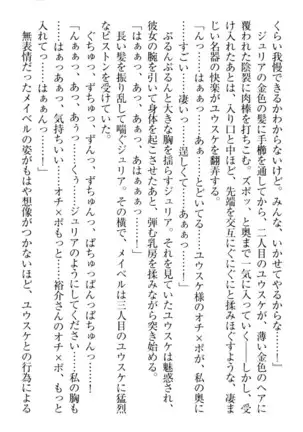 くらい我慢できるかわからないけど。みんな、いかせてやるからな……！
ジュリアの金色の髪に手櫛を通してから、二人目のユウスケが、薄い金色のヘアに
覆われた陰裂に肉棒を打ちこむ。ズボッ、と奥まで一気に入っていく――しかし、受
け入れたあとは、入り口と中ほど、先端を交互にぐにぐにと揉みほぐすような、凄ま
じい名器の快楽がユウスケを翻弄する。
「はぁっ……はぁぁっ……あぁっ……ユウスケ様のオチ×ポが、私の奥に
っ……！凄いっ……逞しくてっ……ああっ……！」
ぶるんぶるんと大きな胸を揺らすジュリア。それを見ていたユウスケは魅惑され、
彼女の腕を引いて身体を起こさせたあと、弾む乳房を揉みながら突き始める。
「すごいっ……あっ、あっ、あっ、あはぁぁぁっ……！」
長い髪を振り乱して喘ぐジュリア。その横で、メイベルは三人目のユウスケに猛烈
なピストンを受けていた。
ぐちゅっ、ずちゅっ、ずんっ、ぱちゅっぱんっぱちゅんっ……！
「んぁっ、あっ、あぅっ……くっ……ジュリアのようにしてください……私の胸も
っ……はぁっあぁっ、気持ちいい……オチ×ポ……裕介さんのオチ×ポ、もっと
入れてっ……はぁぁんっ……！」
無表情だったメイベルの姿がもはや想像がつかないほど、ユウスケとの行為による